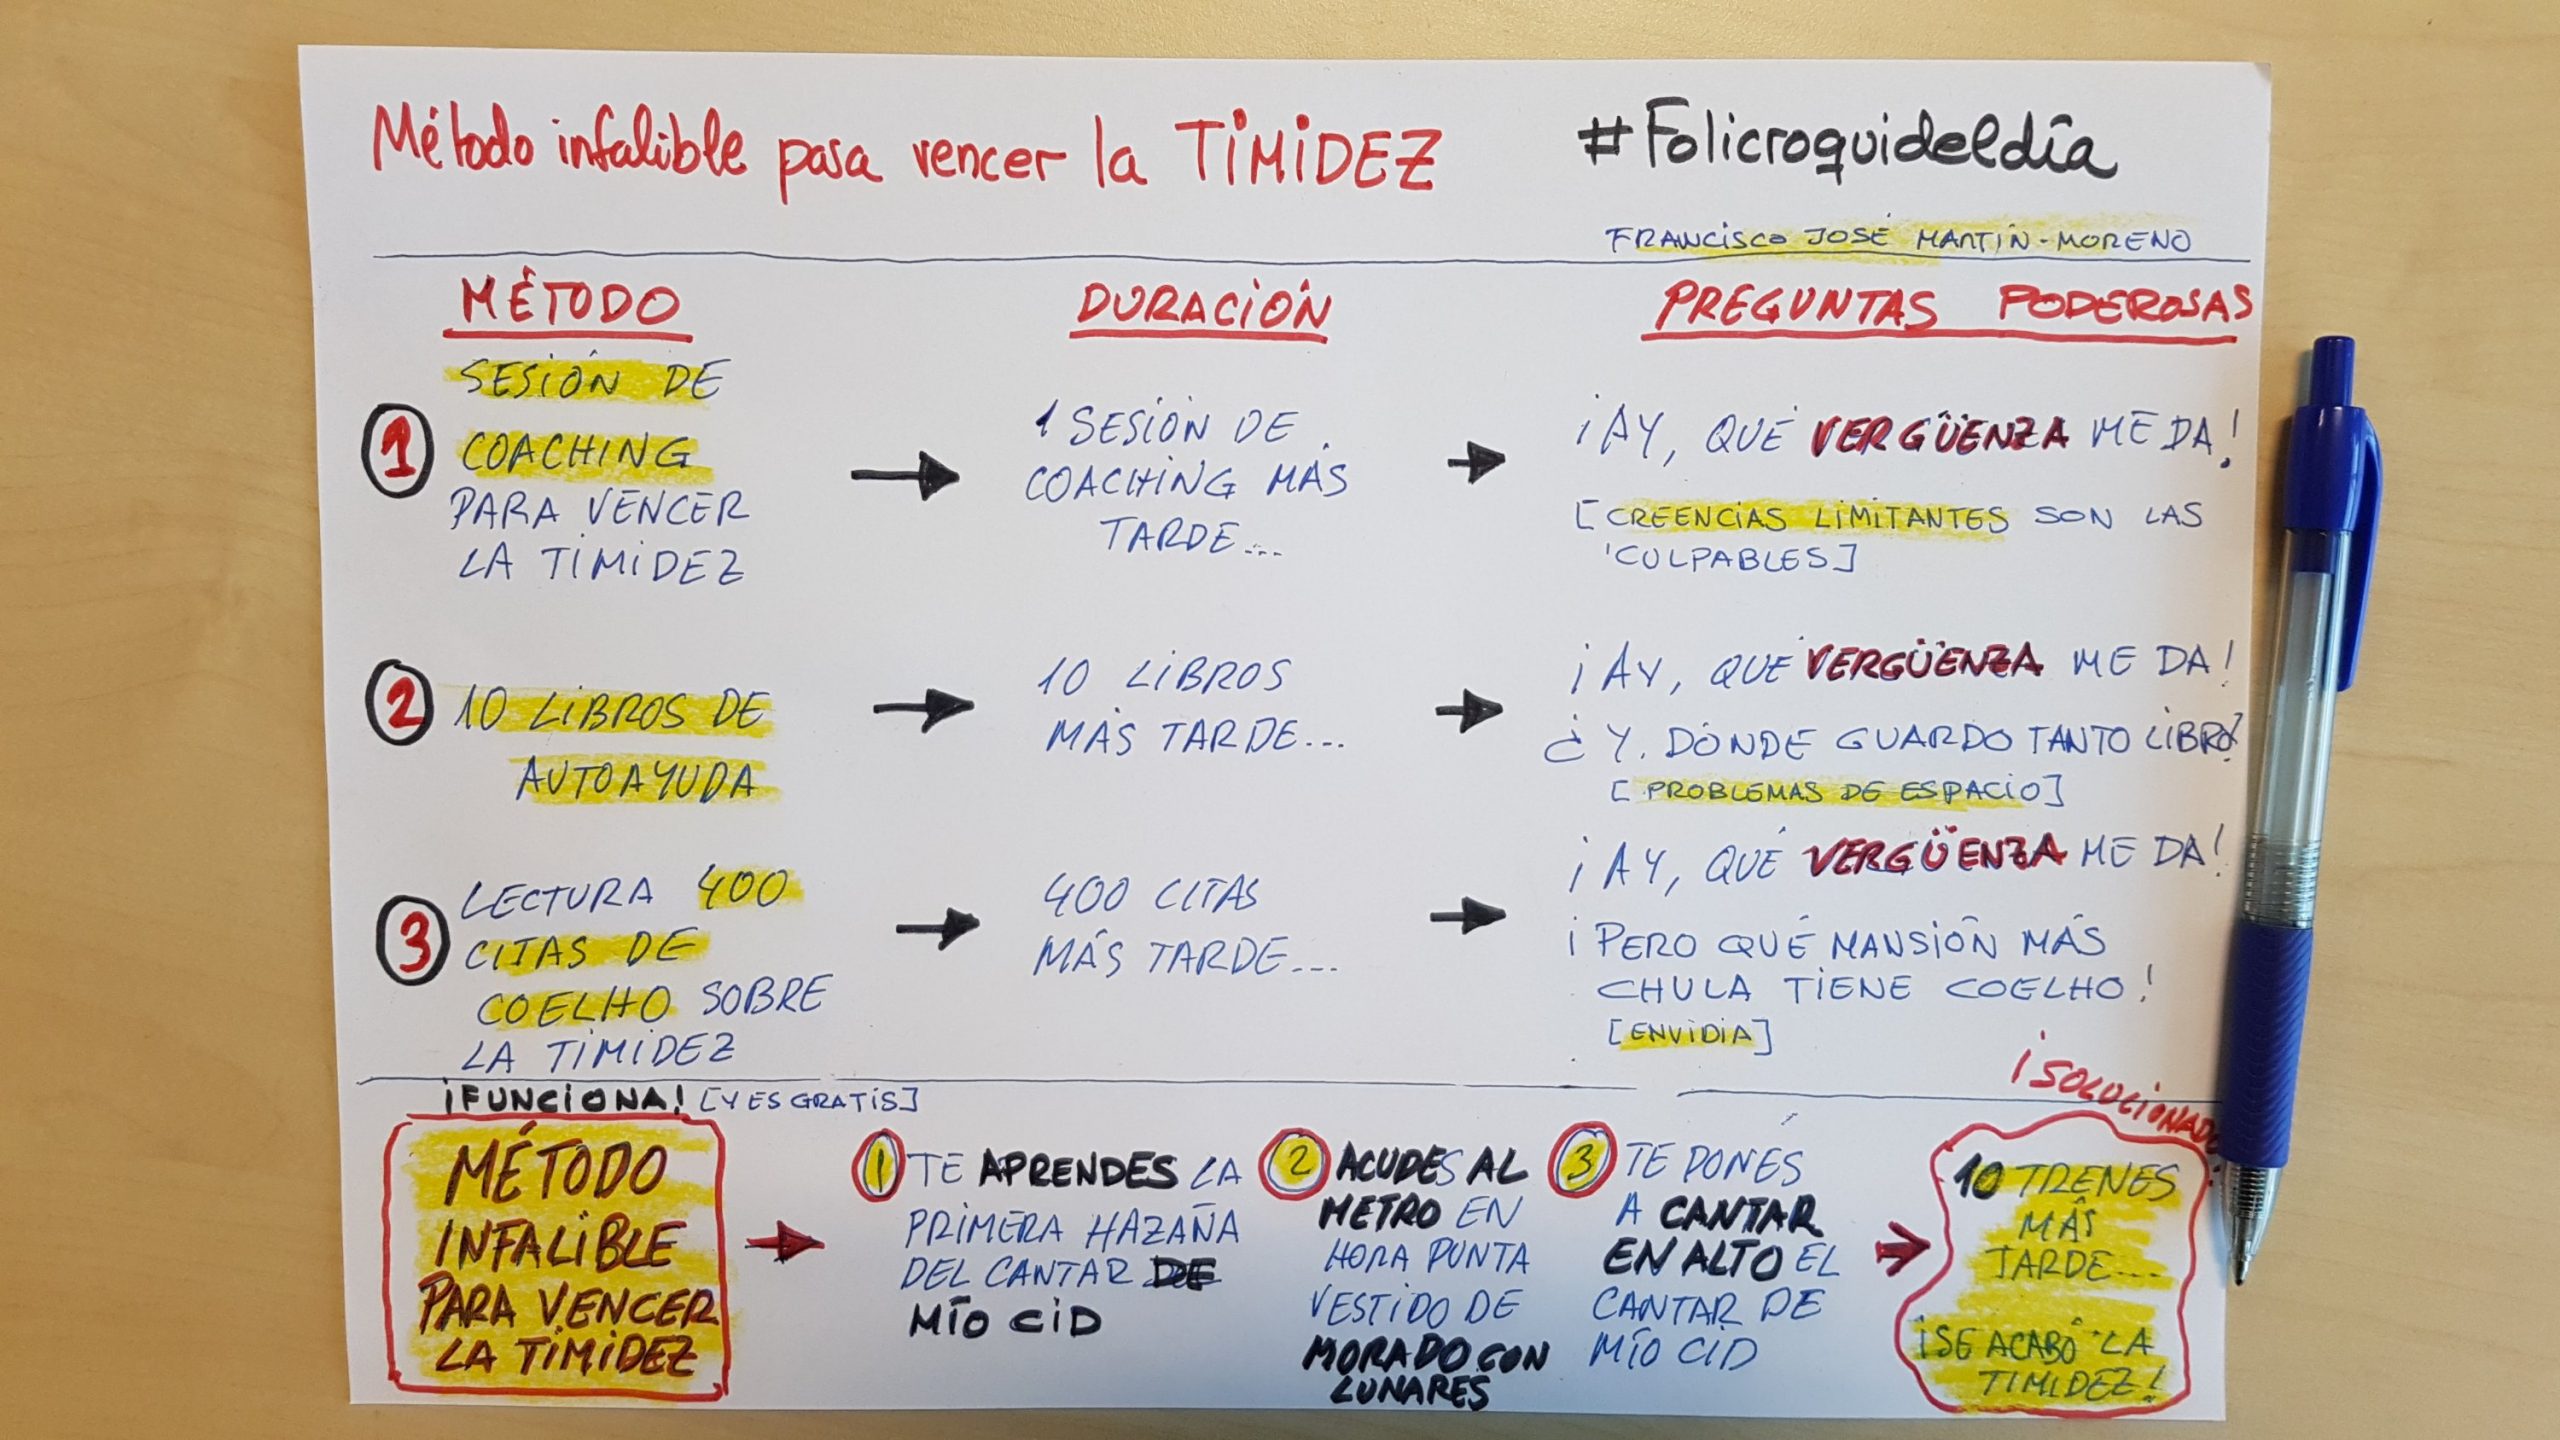 Método infalible para vencer la TIMIDEZ
#Folicroquideldía
FRANCISCO JOSÉ MARTÍN-MORENO
MÉTODO
DURACIÓN
PREGUNTAS PODEROSAS
1
SESIÓN DE
COACHING
PARA VENCER
LA TIMIDEZ
1 SESIÓN DE
COACHING MÁS
TARDE...
¡AY, QUÉ VERGÜENZA ME DA!
[CREENCIAS LIMITANTES SON LAS
CULPABLES]
2
10 LIBROS DE
AUTOAYUDA
10 LIBROS
MÁS TARDE...
¡AY, QUÉ VERGÜENZA ME DA!
¿Y DÓNDE GUARDO TANTO LIBRO?
[PROBLEMAS DE ESPACIO]
3
LECTURA 400
CITAS DE
COELHO SOBRE
LA TIMIDEZ
400 CITAS
MÁS TARDE...
¡AY, QUÉ VERGÜENZA ME DA!
¡PERO QUÉ MANSIÓN MÁS
CHULA TIENE COELHO!
[ENVIDIA]
¡FUNCIONA! [Y ES GRATIS]
MÉTODO
INFALIBLE
PARA VENCER
LA TIMIDEZ
1 TE APRENDES LA
PRIMERA HAZAÑA
DEL CANTAR DE
MÍO CID
2 ACUDES AL
METRO EN
HORA PUNTA
VESTIDO DE
MORADO CON
LUNARES
3 TE PONES
A CANTAR
EN ALTO EL
CANTAR DE
MÍO CID
¡SOLUCIONADO!
10 TRENES
MÁS
TARDE...
¡SE ACABÓ LA
TIMIDEZ!